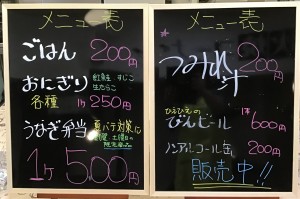 メニュー表
ごはん 200円
おにぎり 紅鮭 すじこ
生たらこ
各種 1ケ 250円
うなぎ弁当 夏バテ対策に
1ケ 500円
メニュー表
つみれ汁 200円
ひえひえの
びんビール 1本 600円
ノンアルコール缶 200円
販売中!!